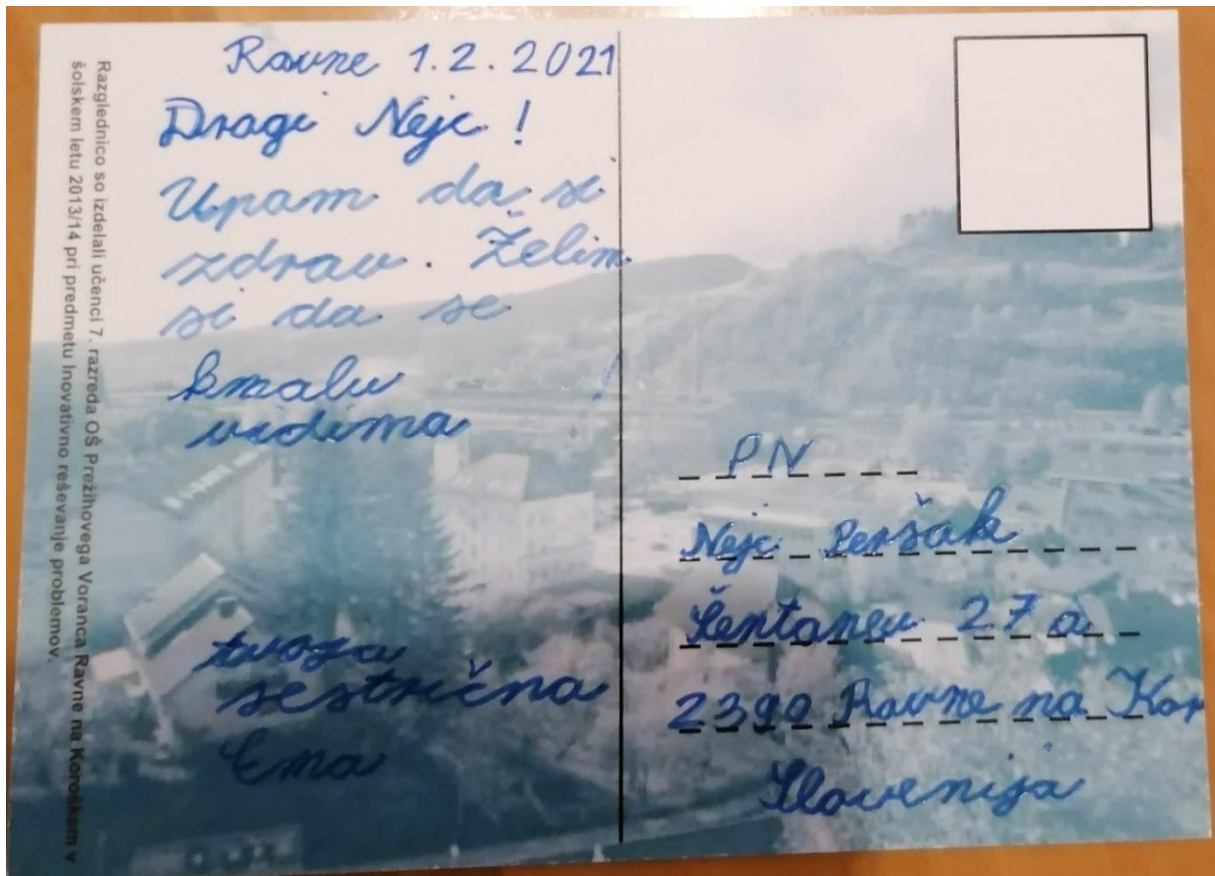 Razglednico so izdelali učenci 7. razreda OŠ Prežihovega Voranca Ravne na Koroškem v
šolskem letu 2013/14 pri predmetu Inovativno reševanje problemov.
Ravne 1.2.2021
Dragi Nejc!
Upam da si
zdrav. Želim
si da se
kmalu
vidima
tvoja
sestrična
Ema
PN
Nejc Peršak
Šentanev 27 a
2390 Ravne na Kor
Slovenija